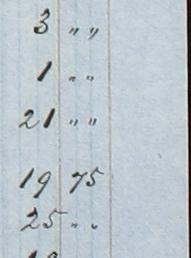 3 " "
1 " "
21 " "
19 75
25 " "